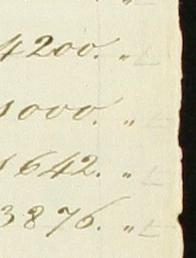 4200. "
1000. "
1642. "
3876. "